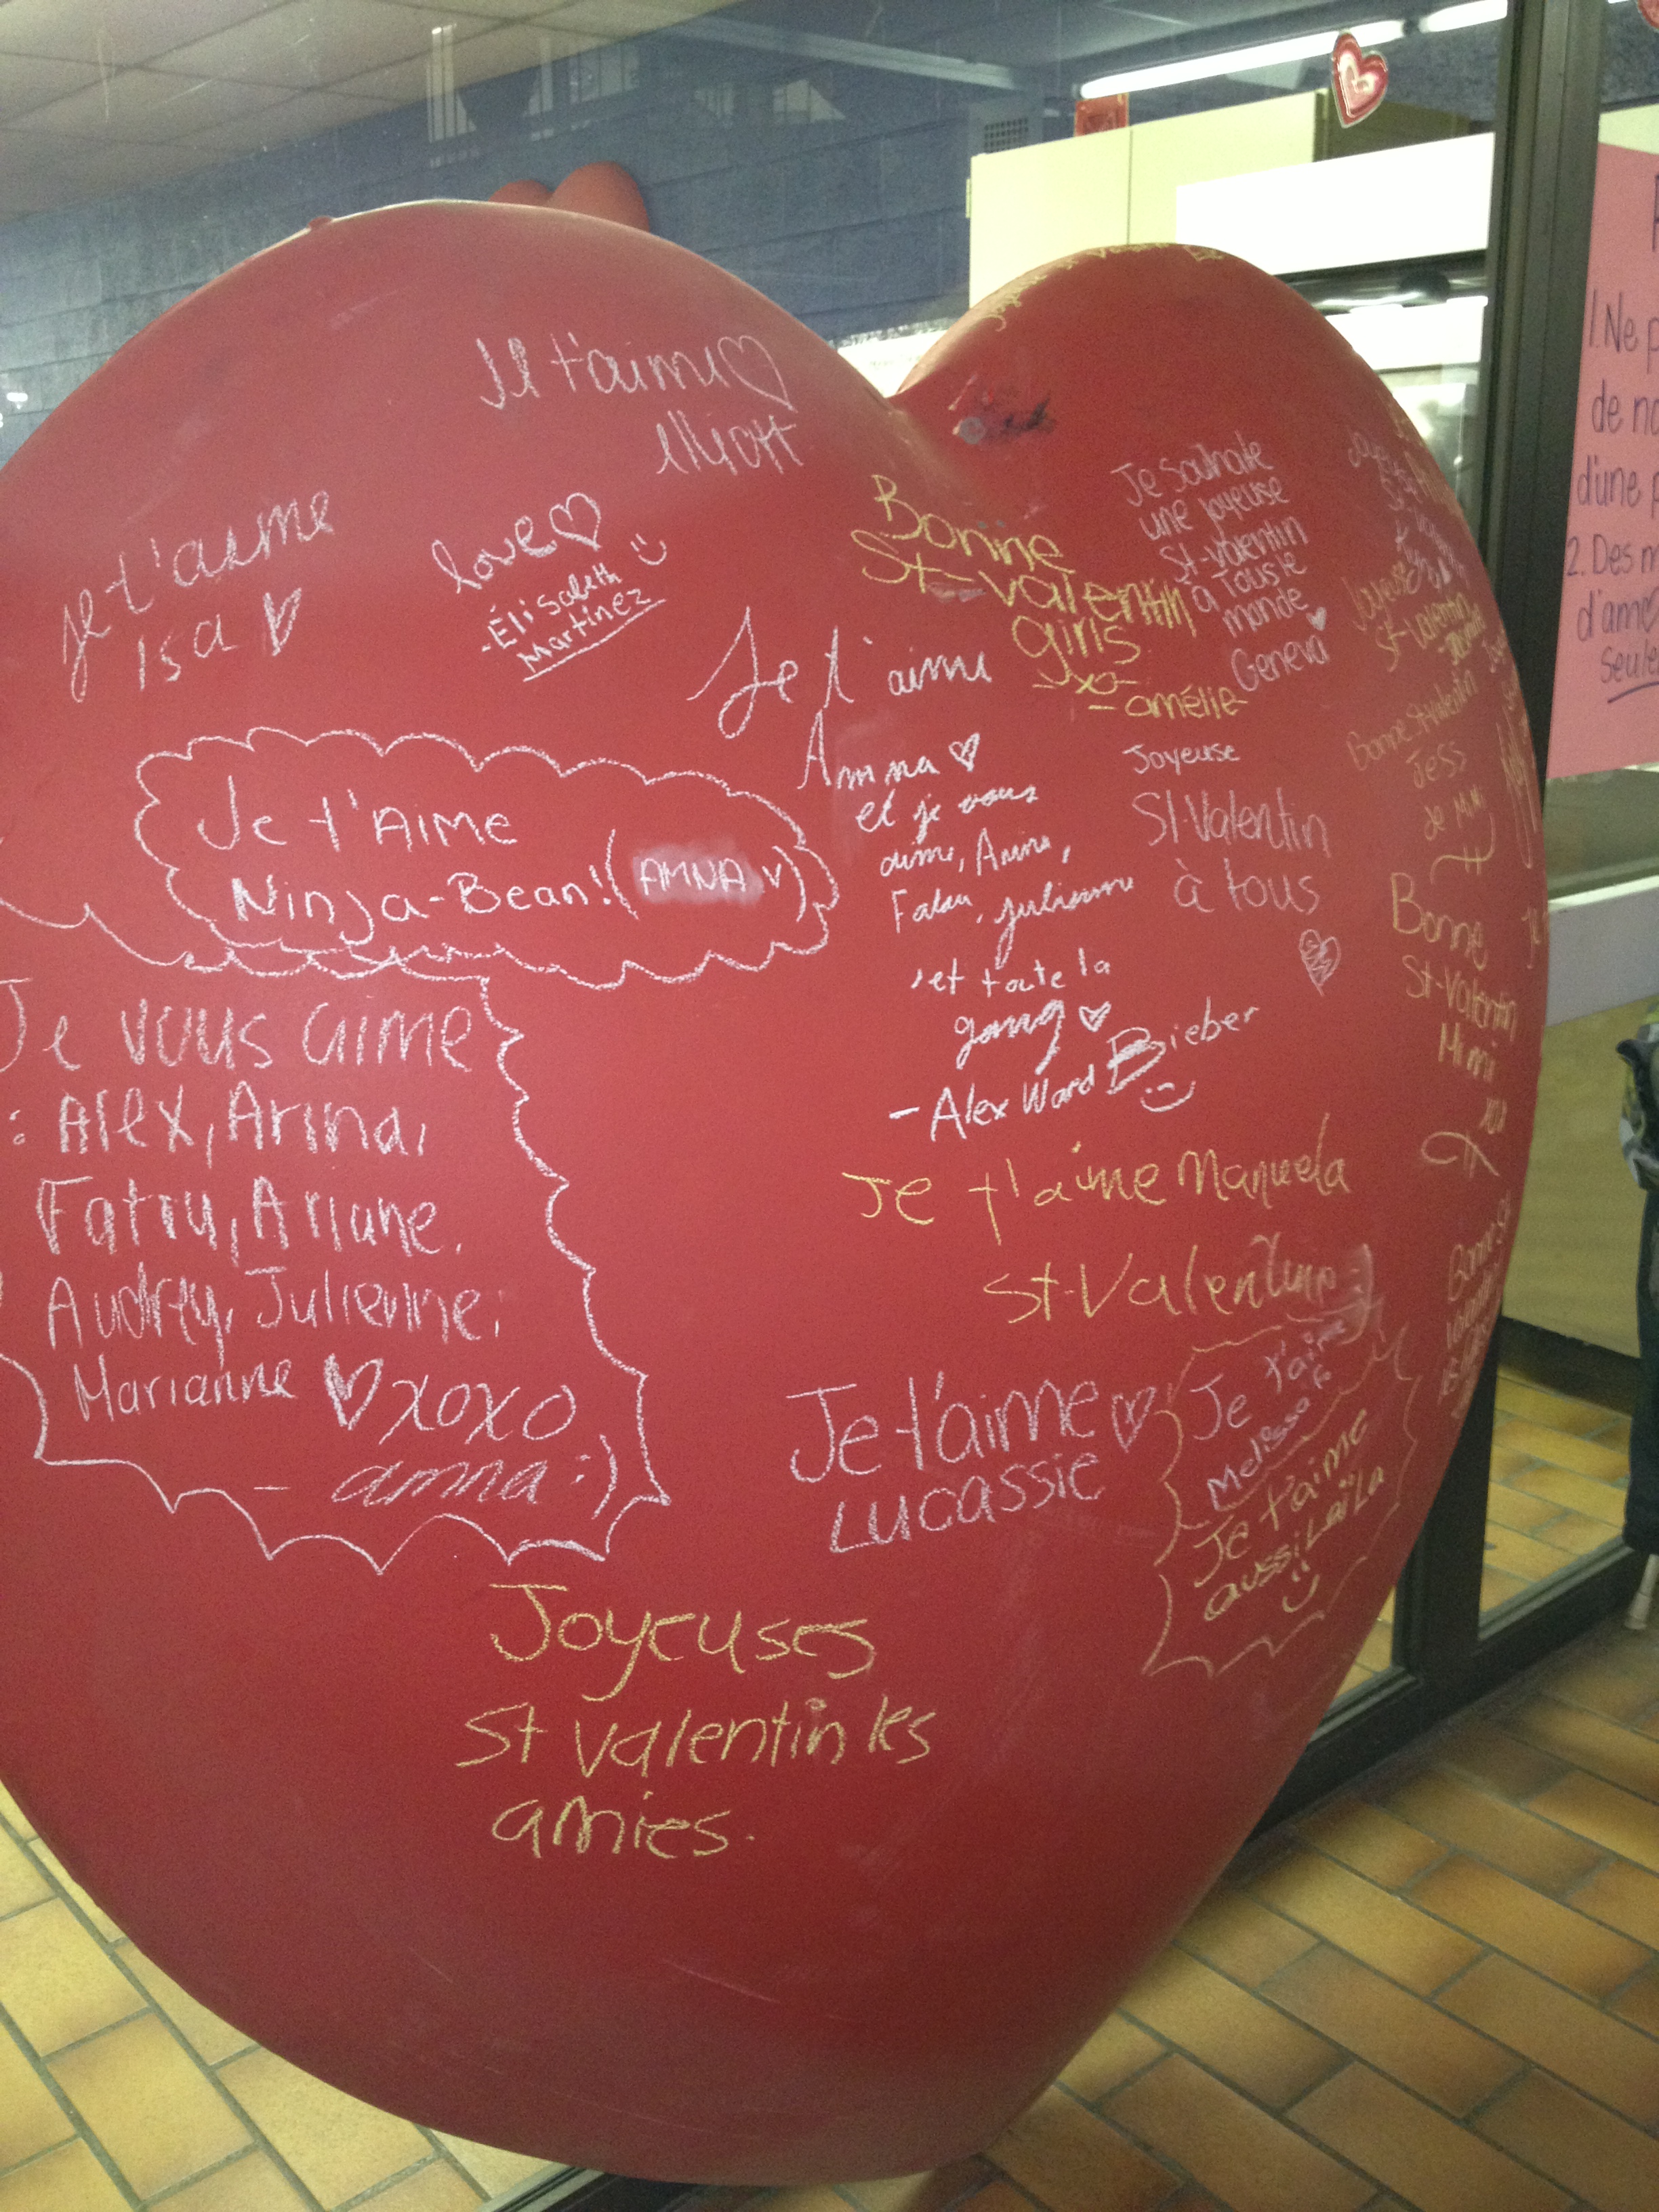 Je t'aime
elliott
je t'aime
isa
love
-Élisabeth
Martinez
Bonne
St-valentin
girls
-xo-
- amélie-
Je Souhaite
une joyeuse
St-valentin
à tous le
monde
Geneva
Je t'aime
Amna
et je vous
aime, Arina,
Fatou, julienne
et toute la
gang
- Alex Ward Bieber
Je t'Aime
Ninja-Bean! (AMNA)
Joyeuse
St-Valentin
à tous
Joyeuse
St-Valentin
Bonne St-Valentin
Jess
de Mimi
Bonne
St-Valentin
Mimi
xo
Je vous aime
: Alex, Arina,
Fatou, Ariane,
Audrey, Julienne,
Marianne xoxo
- amna :)
Je t'aime Manuela
St-Valentin
Je t'aime
Lucassie
Je t'aime
Melissa
Je t'aime
aussi Laïla
Joyeuses
St valentin les
amies.
1. Ne
de
d'une
2. Des